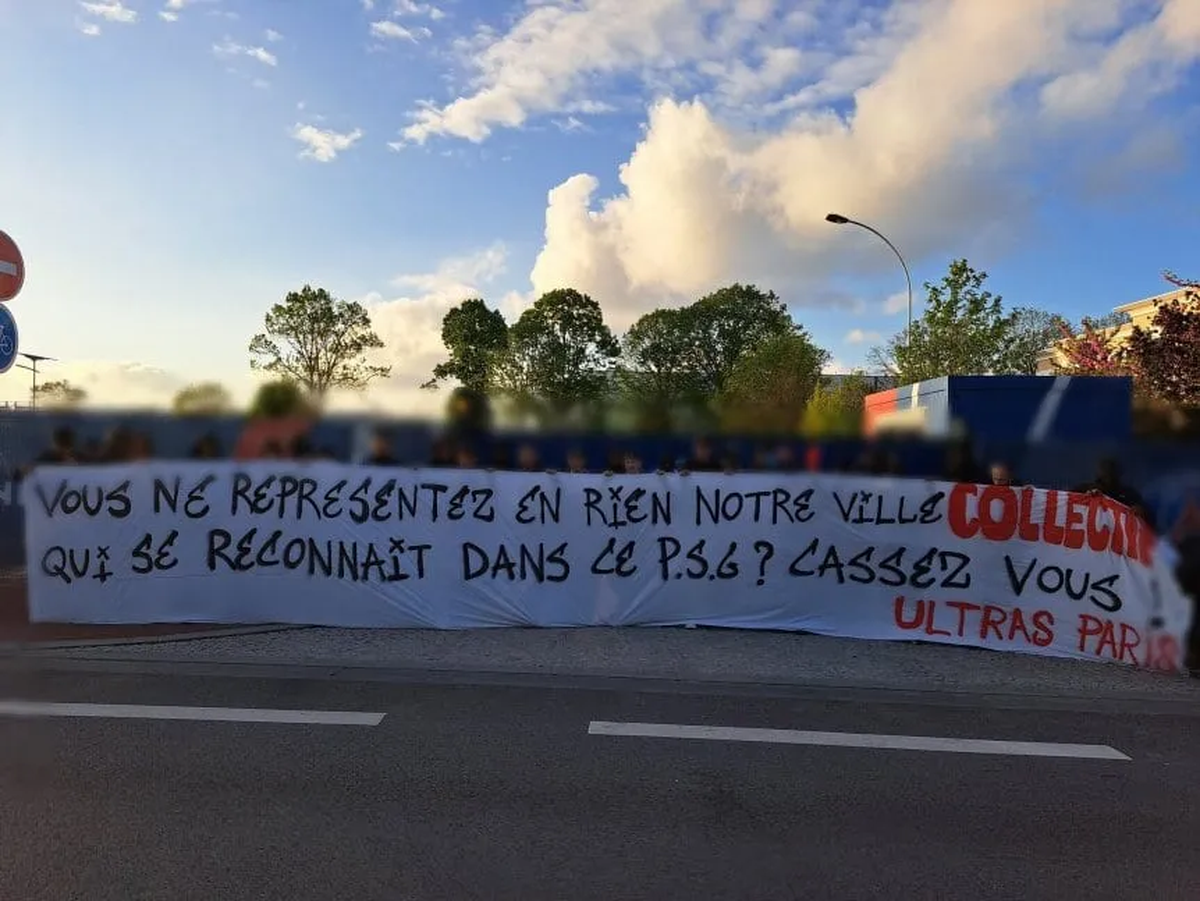 VOUS NE REPRESENTEZ EN RiEN NOTRE ViLLE
QUi SE RECONNAîT DANS CE P.S.G ? CASSEZ VOUS
COLLECTIF
ULTRAS PARIS